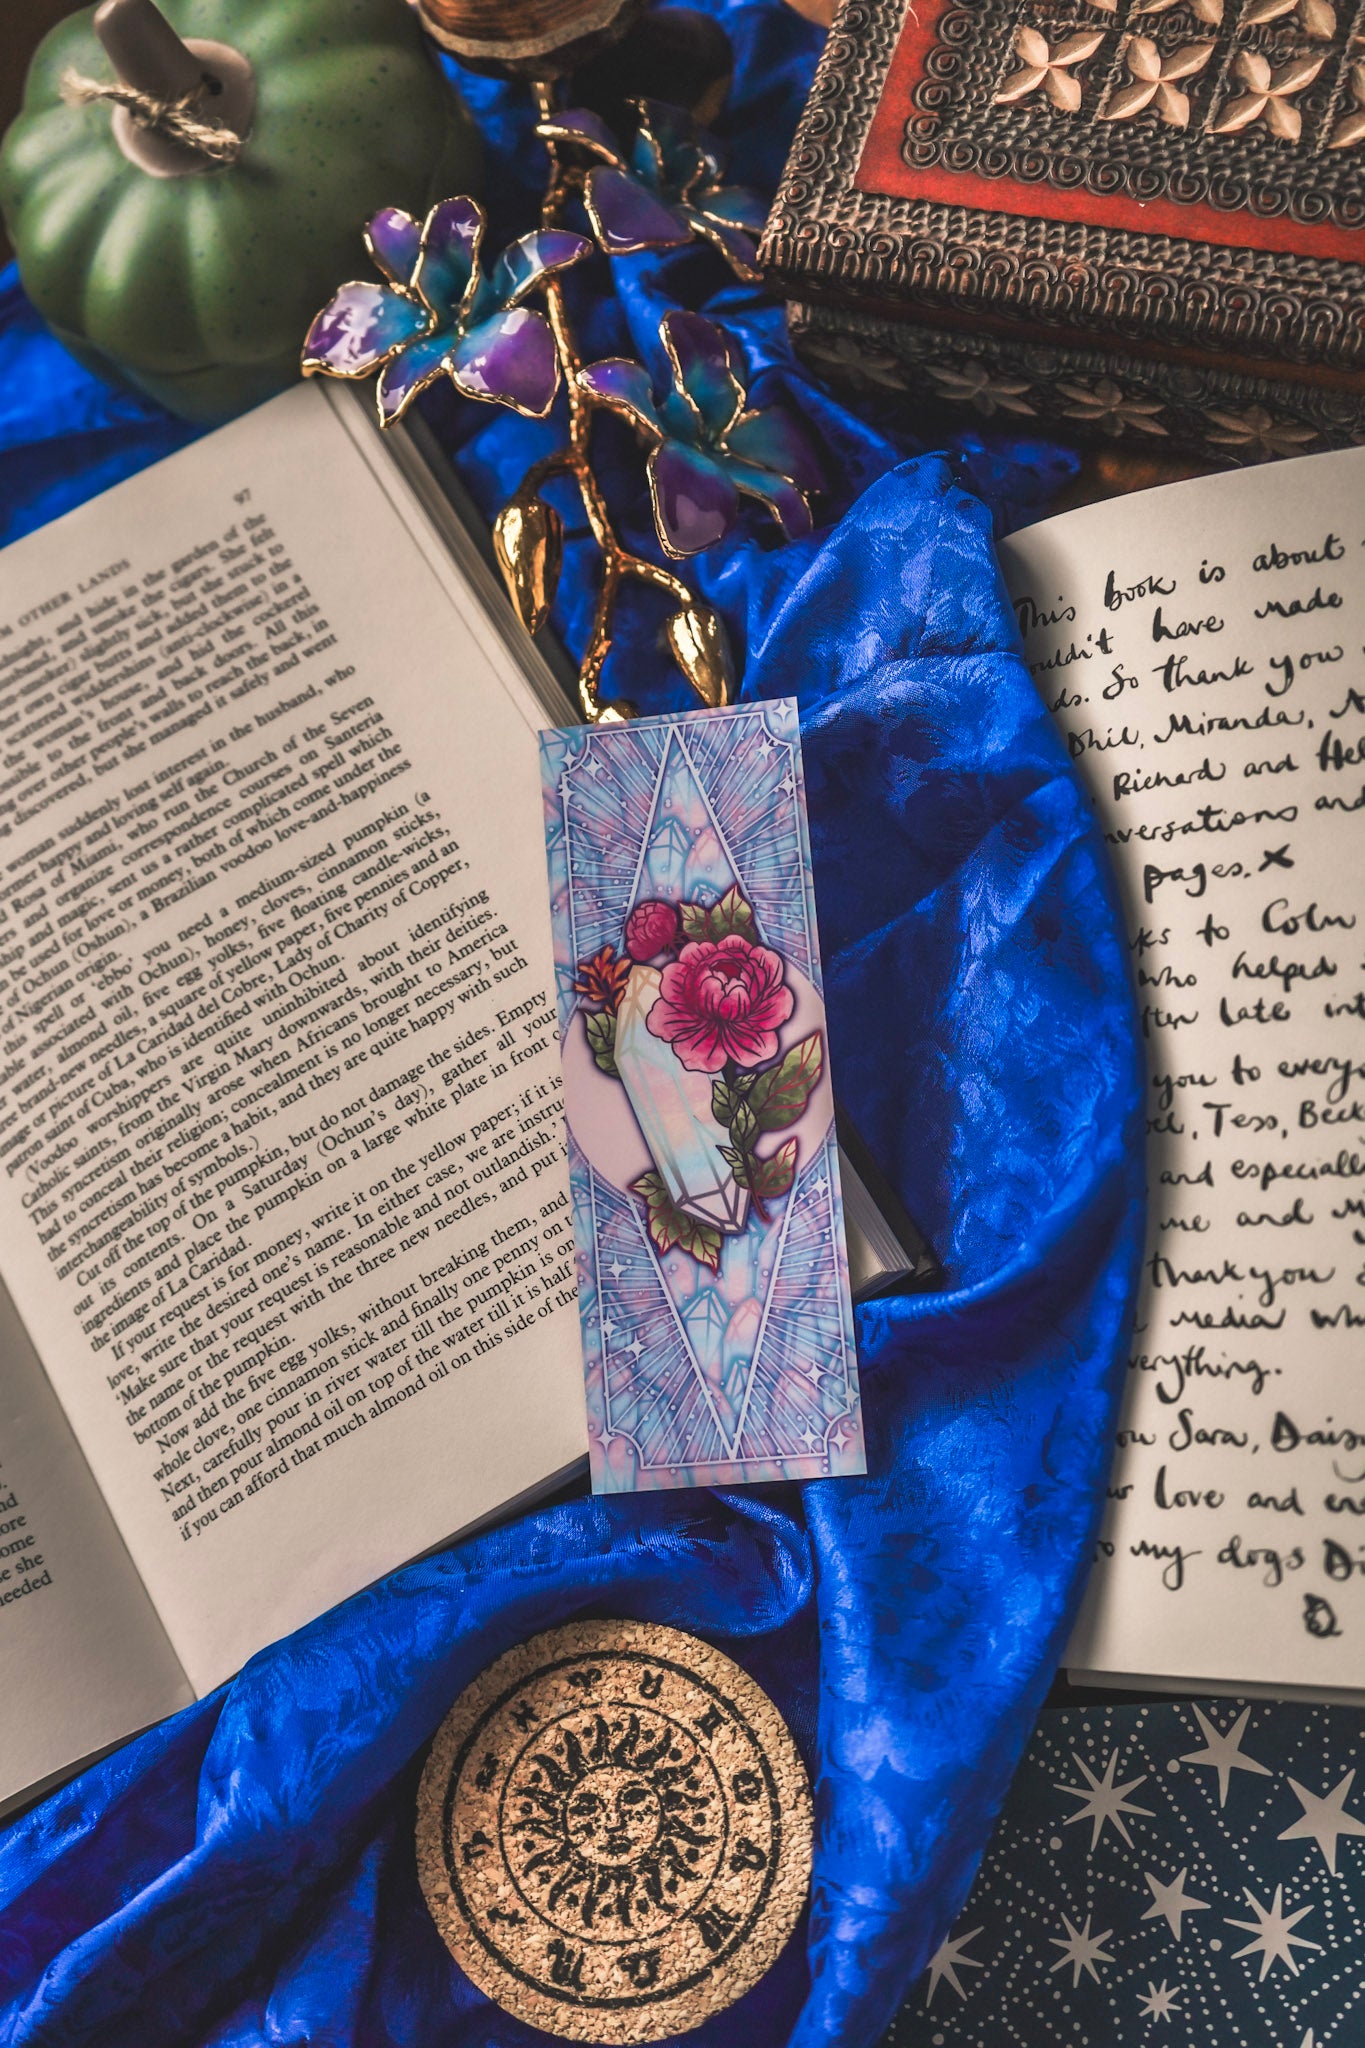 97
OTHER LANDS
and hide in the garden of the
and smoke the cigars. She felt
slightly sick, but she stuck to
own cigar butts and added them to the
scattered widdershins (anti-clockwise) in a
the woman's house, and hid the cockerel
to the front and back doors. All this
over other people's walls to reach the back, in
discovered, but she managed it safely and went
woman suddenly lost interest in the husband, who
happy and loving self again.
Rosa of Miami, who run the Church of the Seven
and organize correspondence courses on Santeria
and magic, sent us a rather complicated spell which
be used for love or money, both of which come under the
of Ochun (Oshun), a Brazilian voodoo love-and-happiness
of Nigerian origin.
this spell or 'ebbo' you need a medium-sized pumpkin (a
associated with Ochun), honey, cloves, cinnamon sticks,
water, almond oil, five egg yolks, five floating candle-wicks,
brand-new needles, a square of yellow paper, five pennies and an
image or picture of La Caridad del Cobre, Lady of Charity of Copper,
patron saint of Cuba, who is identified with Ochun.
(Voodoo worshippers are quite uninhibited about identifying
Catholic saints, from the Virgin Mary downwards, with their deities.
This syncretism originally arose when Africans brought to America
had to conceal their religion; concealment is no longer necessary, but
the syncretism has become a habit, and they are quite happy with such
interchangeability of symbols.)
Cut off the top of the pumpkin, but do not damage the sides. Empty
out its contents. On a Saturday (Ochun's day), gather all your
ingredients and place the pumpkin on a large white plate in front
the image of La Caridad.
If your request is for money, write it on the yellow paper; if it is
love, write the desired one's name. In either case, we are
'Make sure that your request is reasonable and not outlandish.'
the name or the request with the three new needles, and put
bottom of the pumpkin.
Now add the five egg yolks, without breaking them, and
whole clove, one cinnamon stick and finally one penny on
Next, carefully pour in river water till the pumpkin is
and then pour almond oil on top of the water till it is half
if you can afford that much almond oil on this side of the
This book is about
have made
So thank you
Phil, Miranda,
Richard and
and
pages. x
to Colm
who helped
late
you to
Tess,
and
me and
thank you
media
Sara,
love and
my dogs